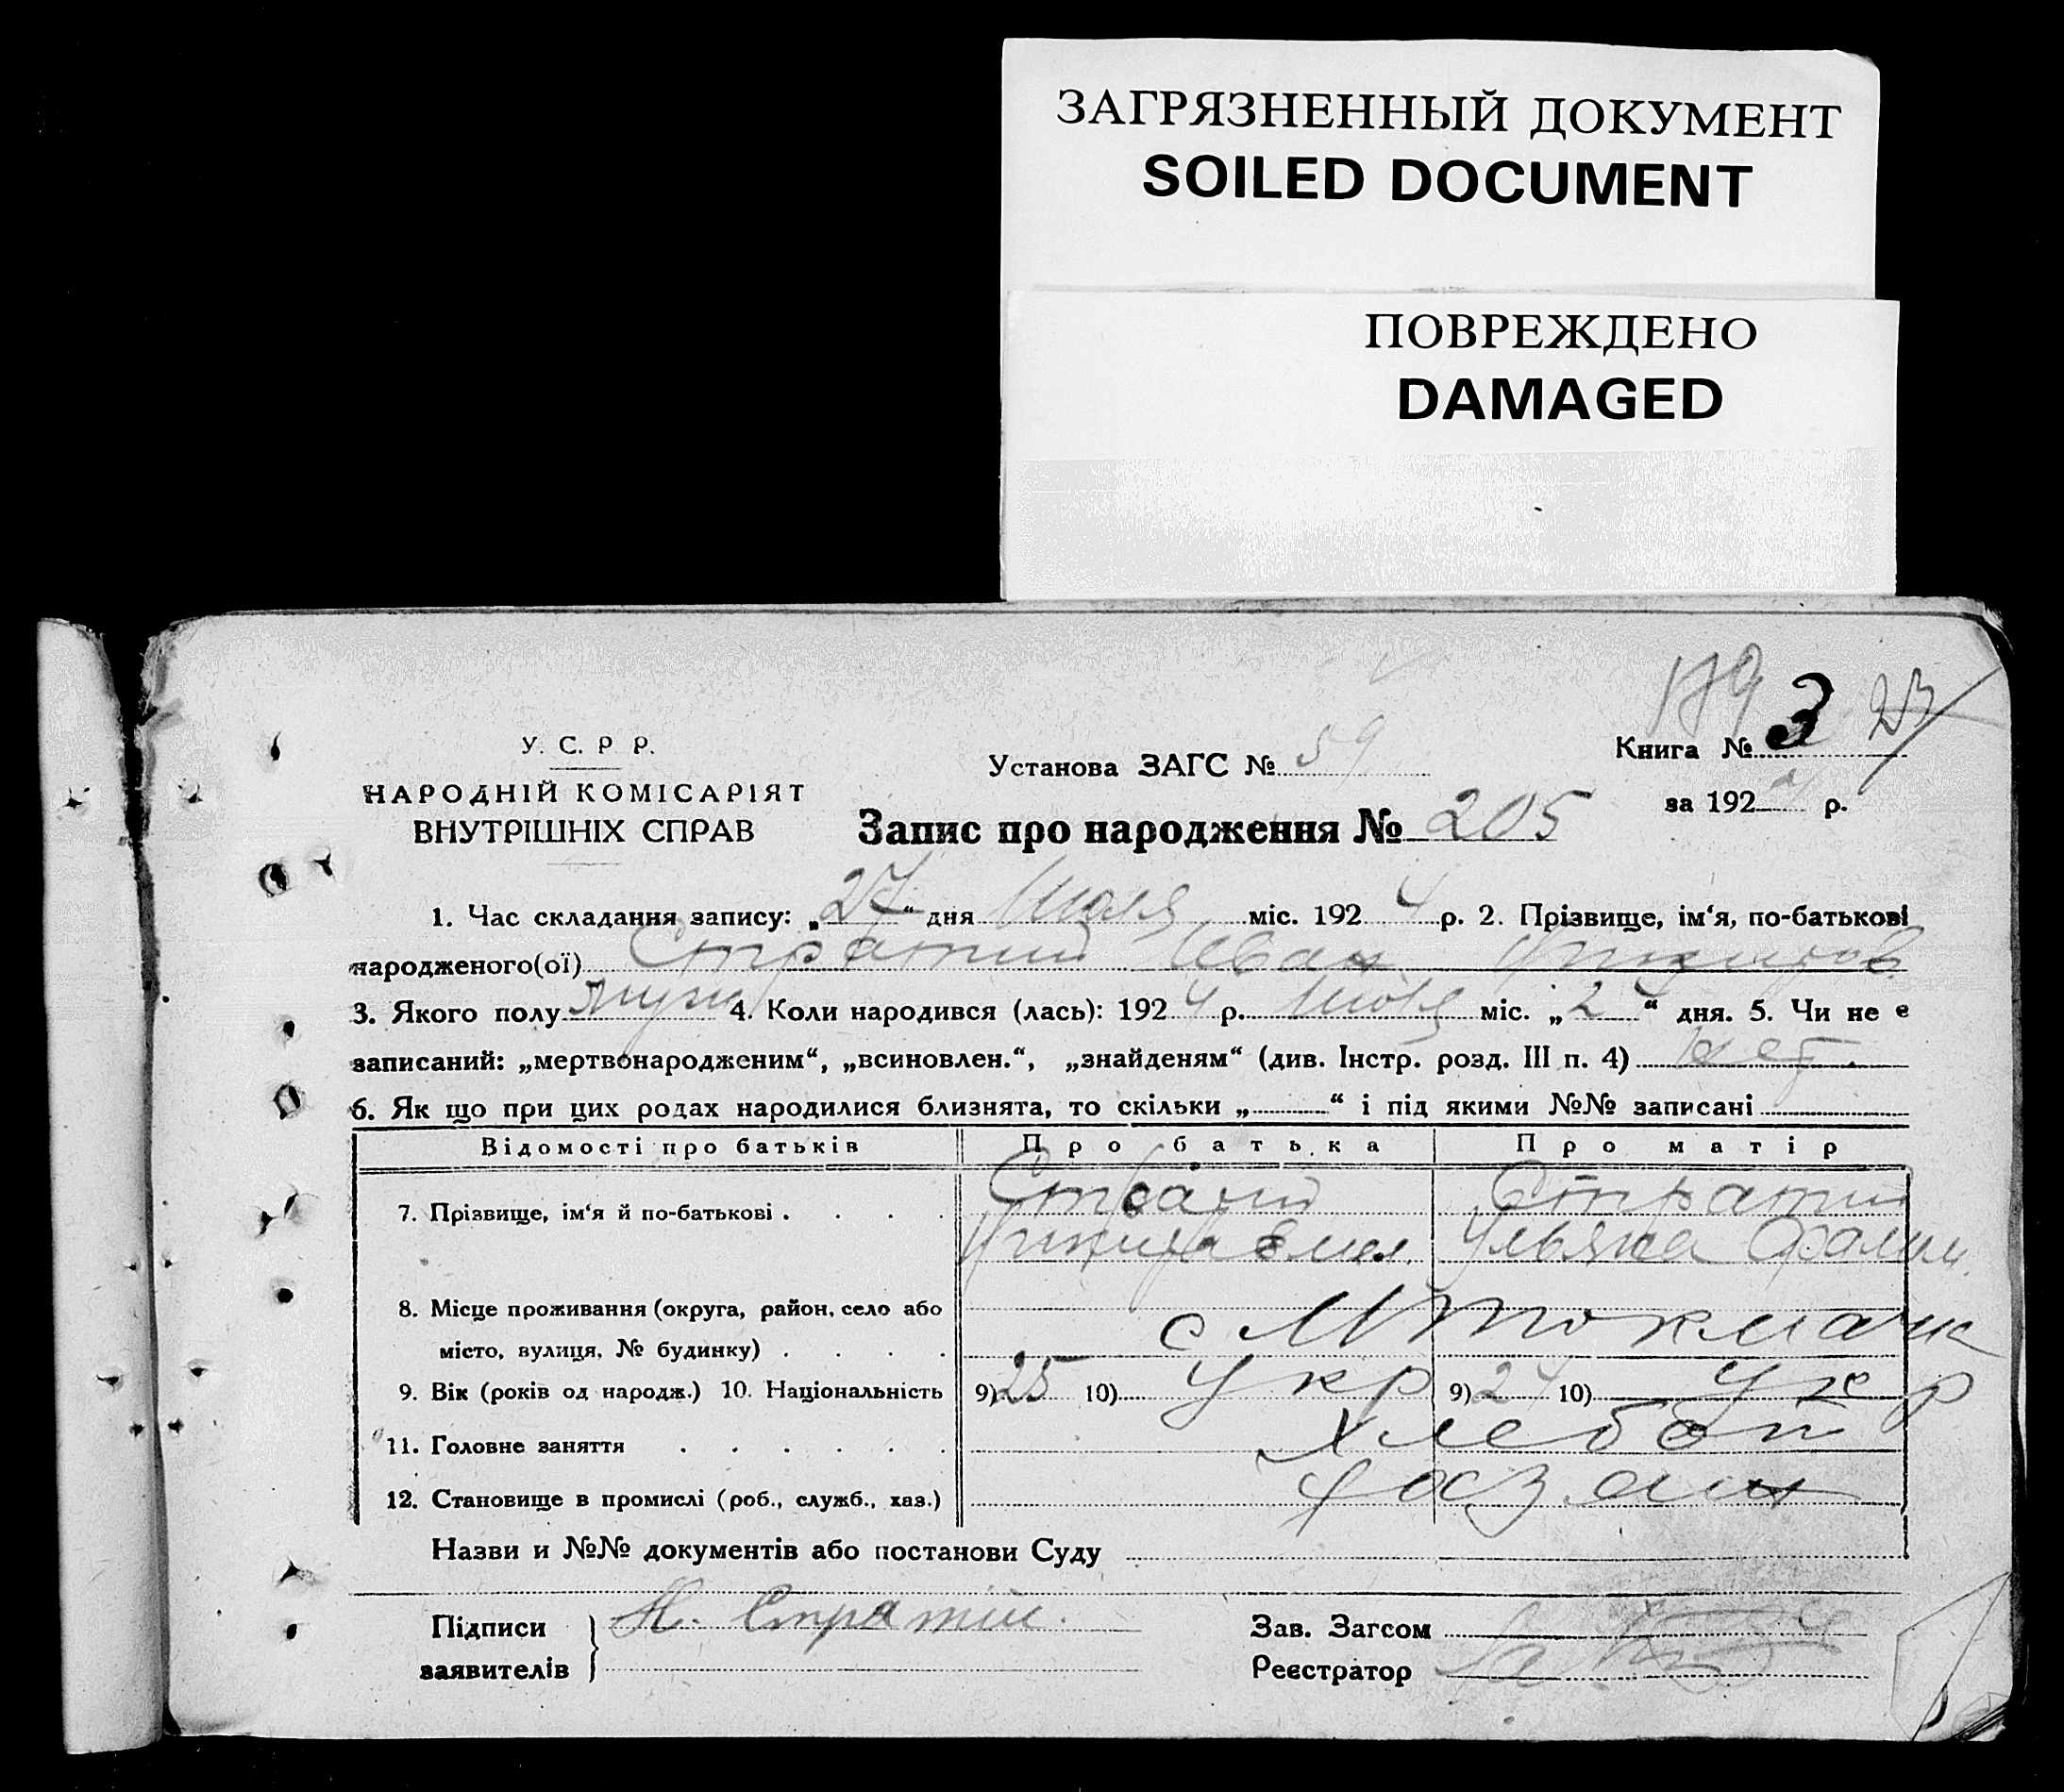 ЗАГРЯЗНЕННЫЙ ДОКУМЕНТ
SOILED DOCUMENT
ПОВРЕЖДЕНО
DAMAGED
У. С. Р Р.
НАРОДНІЙ КОМІСАРІЯТ
ВНУТРІШНІХ СПРАВ
Установа ЗАГС № 59
179
Книга № 3 27
за 1924 р.
Запис про народження № 205
1. Час складання запису: „27“ дня Июля міс. 1924 р. 2. Прізвище, ім‘я, по-батькові
народженого(ої) Стратий Иван
3. Якого полу муж 4. Коли народився (лась): 1924 р. Июля міс. „24“ дня. 5. Чи не є
записаний: „мертвонародженим“, „всиновлен.“, „знайденям“ (див. Інстр. розд. III п. 4) нет.
6. Як що при цих родах народилися близнята, то скільки „ “ і під якими №№ записані
Відомості про батьків Про батька Про матір
7. Прізвище, ім‘я й по-батькові . . . . Стратий Стратий
Ульяна
8. Місце проживання (округа, район, село або
місто, вулиця, № будинку) . . . . с М Токмачк
9. Вік (років од народж.) 10. Національність 9) 25 10) Укр 9) 24 10) Укр
11. Головне заняття . . . . . . Хлебоп
12. Становище в промислі (роб., служб., хаз.) Хозяин
Назви и №№ документів або постанови Суду
Підписи Н. Стратий.
заявителів
Зав. Загсом
Реєстратор